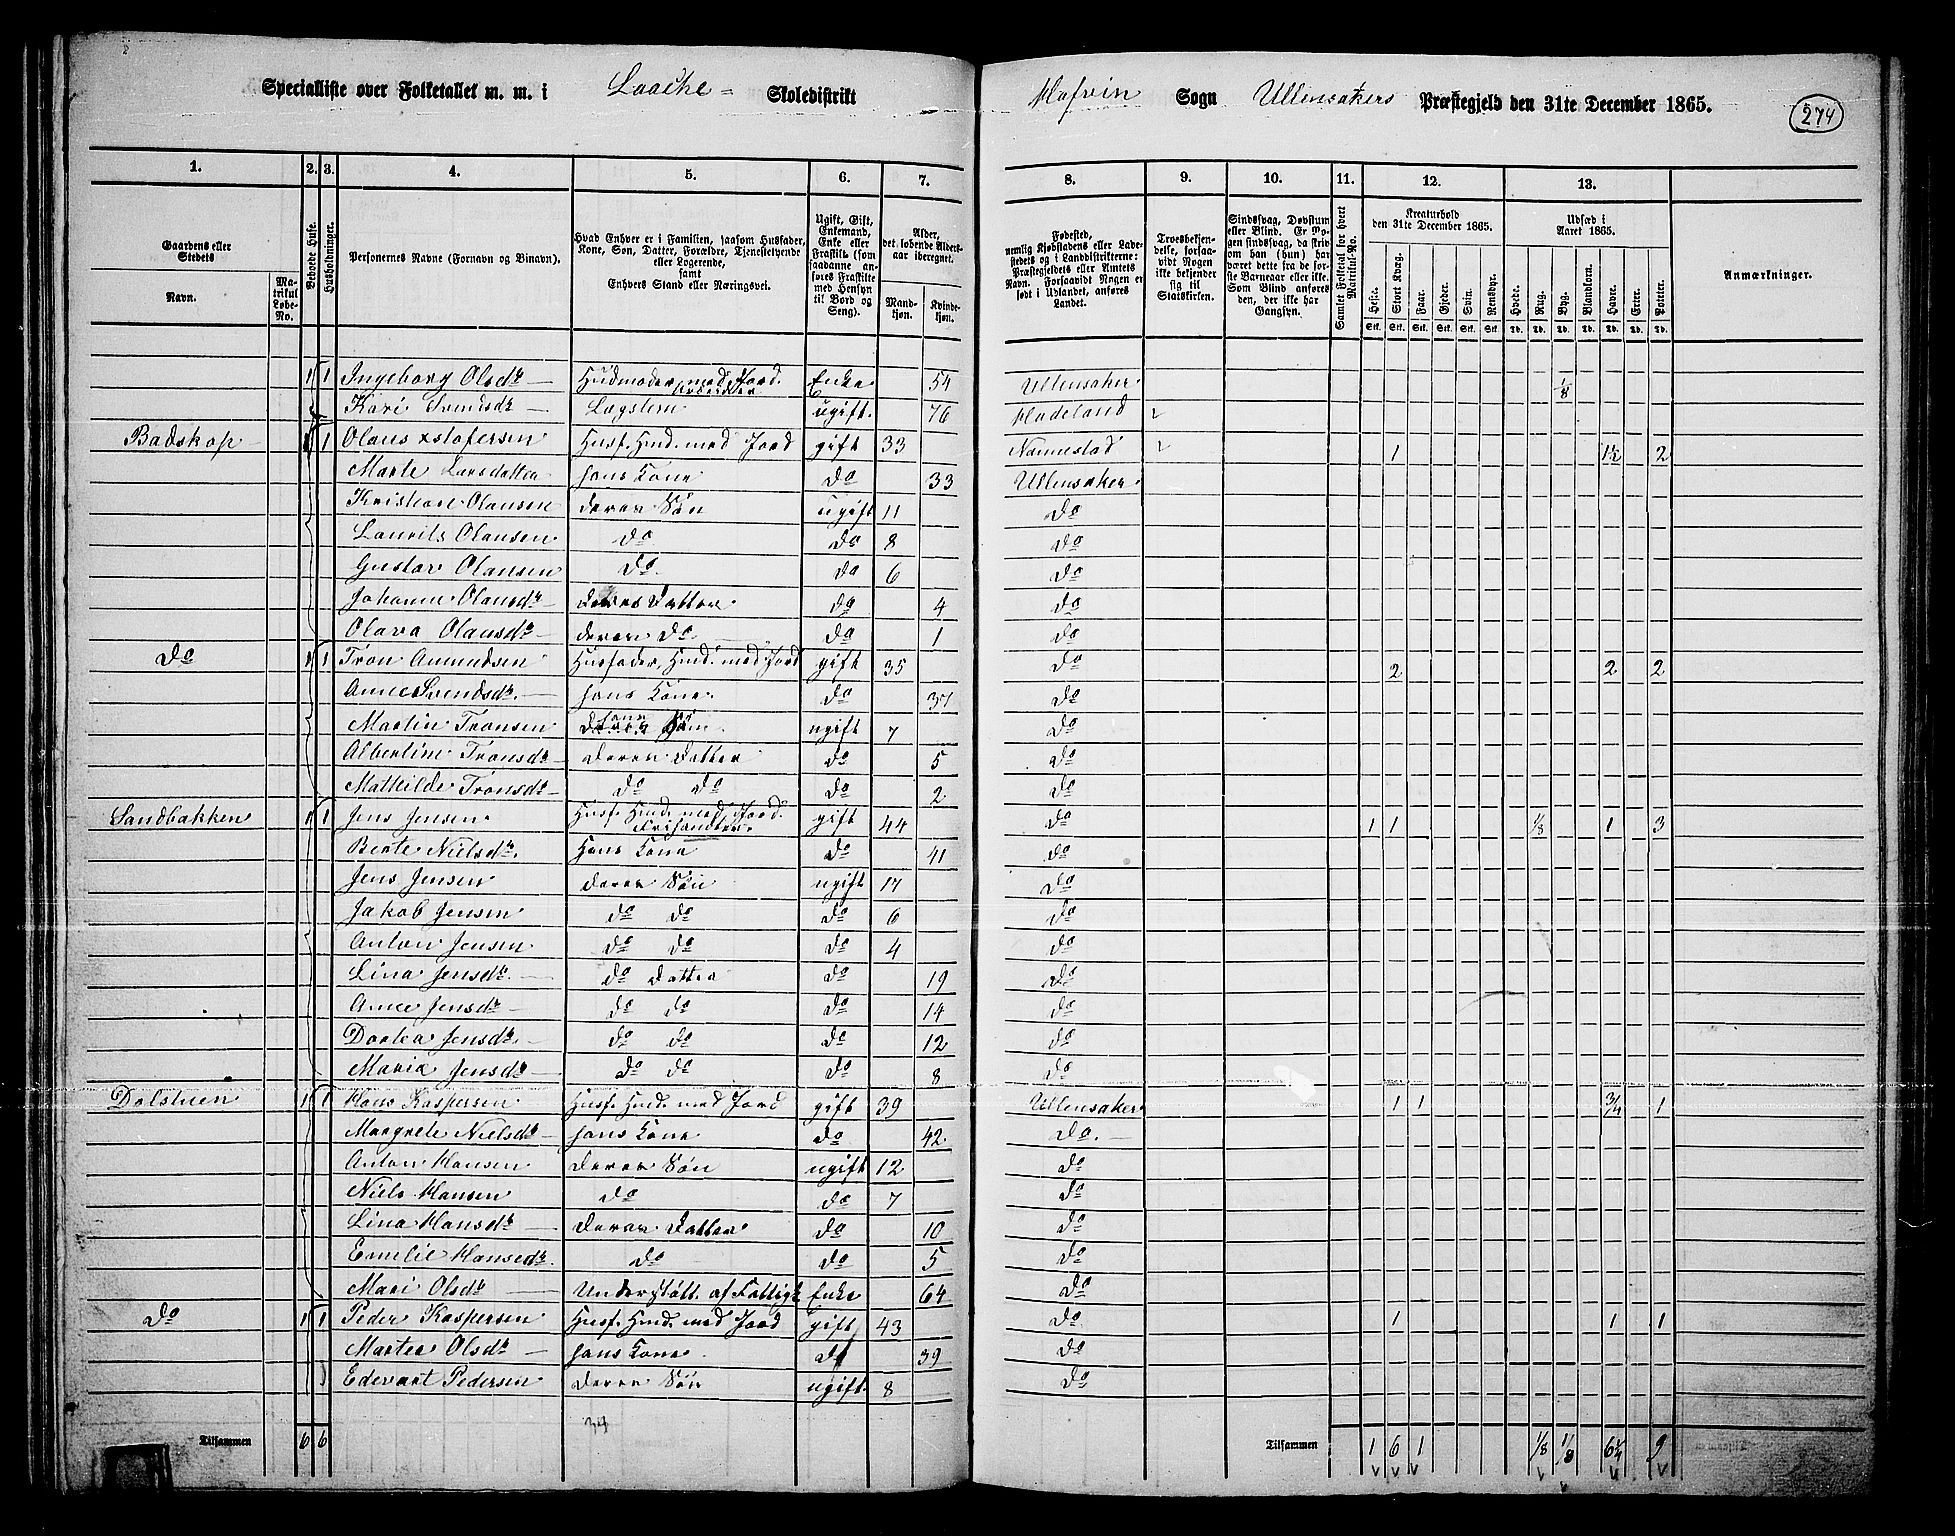 Specialliste over Folketallet m. m. i Laache = Skoledistrikt Hofvin Sogn Ullensakers Præstegjeld den 31te December 1865.
274
1. 2. 3. 4. 5. 6. 7. 8. 9. 10. 11. 12. 13.
Gaardens eller Stedets
Navn.
Matrikul Løbe-No.
Beboede Huse.
Husholdninger.
Personernes Navne (Fornavn og Binavn).
Hvad Enhver er i Familien, saasom Husfader, Kone, Søn, Datter, Forældre, Tjenestetyende eller Logerende, samt Enhvers Stand eller Næringsvei.
Ugift, Gift, Enkemand, Enke eller Fraskilt (som saadanne anføres Fraskilte med Hensyn til Bord og Seng).
Alder, det løbende Aldersaar iberegnet.
Mandkjøn.
Kvindekjøn.
Fødested, nemlig Kjøbstadens eller Ladestedets og i Landdistrikterne: Præstegjeldets eller Amtets Navn. Forsaavidt Nogen er født i Udlandet, anføres Landet.
Troesbekjendelse, forsaavidt Nogen ikke bekjender sig til Statskirken.
Sindssvag, Døvstum eller Blind. Er Nogen sindssvag, da skrives om han (hun) har været dette fra de første Barneaar eller ikke. Som Blind anføres den, der ikke har Gangsyn.
Samlet Folketal for hvert Matrikul-No.
Kreaturhold den 31te December 1865.
Heste. Stort Kvæg. Faar. Gjeder. Svin. Rensdyr.
Udsæd i Aaret 1865.
Hvede. Rug. Byg. Blandkorn. Havre. Erter. Poteter.
Anmærkninger.
Stk. Stk. Stk. Stk. Stk. Stk. Td. Td. Td. Td. Td. Td. Td.
1 1 Ingeborg Olsdr Enke 54 Ullensaker 1/8
Kari Svendsdr Lægslem ugift. 76 Hadeland
Badskap 1 1 Olaus Xstofersen Husf. Husm. med Jord gift 33 Nannestad 1 1½ 2
Marte Larsdatter hans Kone do 33 Ullensaker
Kristian Olausen deres Søn ugift 11 do
Laurits Olausen do do 8 do
Gustav Olausen do do 6 do
Johanne Olausdr deres Datter do 4 do
Olava Olausdr deres do do 1 do
do 1 1 Tron Amundsen Husfader, Husm. med Jord gift 35 do 2 2 2
Anne Svendsdr. hans Kone. do 37 do
Martin Tronsen Søn ugift 7 do
Albertine Tronsdr deres Datter do 5 do
Mathilde Tronsdr do do do 2 do
Sandbakken 1 1 Jens Jensen Husf. Husm. med Jord. gift 44 do 1 1 1/8 1 3
Berte Nielsdr. Hans Kone do 41 do
Jens Jensen deres Søn ugift 17 do
Jakob Jensen do do do 6 do
Anton Jensen do do do 4 do
Lina Jensdr. do Datter do 19 do
Anne Jensdr do do do 14 do
Dortea Jensdr. do do do 12 do
Maria Jensdr do do do 8 do
Dolstuen 1 1 Hans Kaspersen Husf. Husm. med Jord gift 39 Ullensaker 1 1 3/4 1
Margrete Nielsdr hans Kone do 42. do.
Anton Hansen deres Søn ugift 12 do
Niels Hansen do do 7 do
Lina Hansdr deres Datter do 10 do
Emelie Hansdr. do do 5 do
Mari Olsdr Understøtt. af Fattigk Enke 64 do
do 1 1 Peder Kaspersen Husf. Husm. med Jord gift 43 do 1 1 1
Marte Olsdr hans Kone. do 39 do
Edevart Pedersen deres Søn ugift. 8 do
34
Tilsammen 6 6 Tilsammen 1 6 1 1/8 1/8 6¼ 9